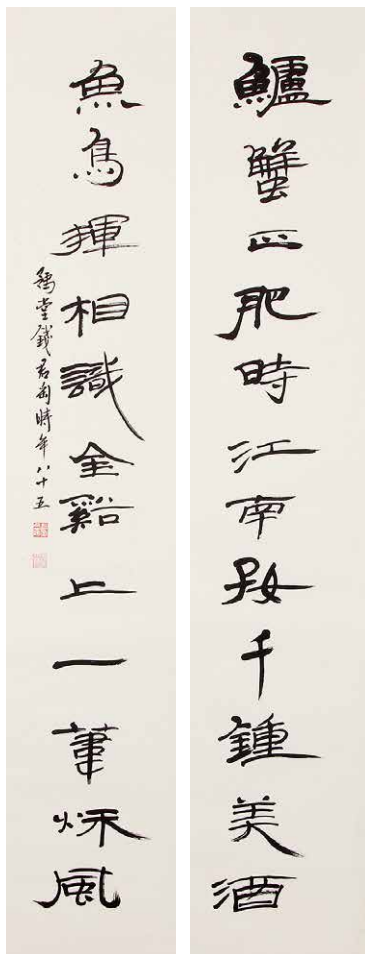 鱸蟹正肥時江南好千鍾美酒
魚鳥揮相識金谿上一葦秌風
豫堂錢君匋時年八十五